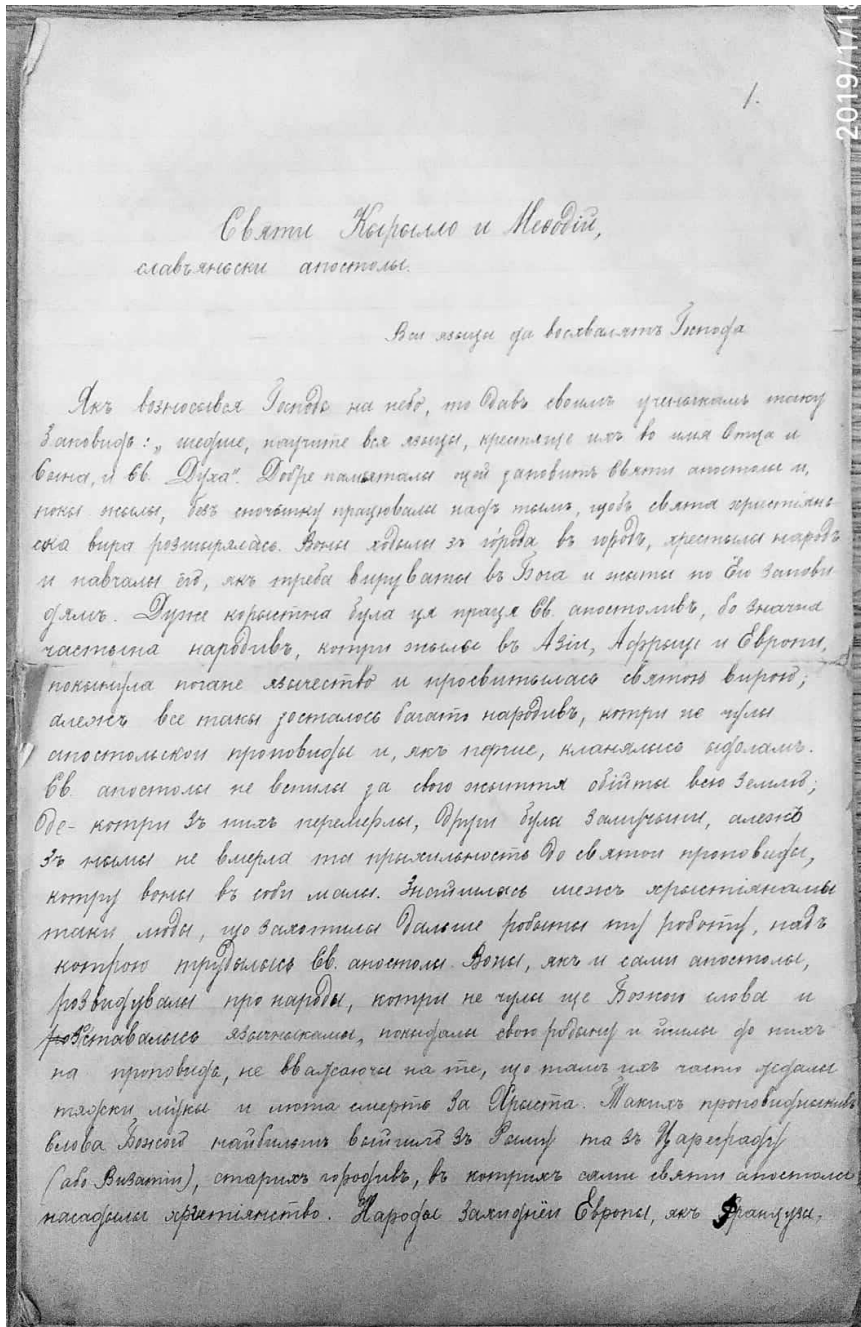 2019/1/18
1.
Святи Кырылло и Меѳодій,
славъяньски апостолы.
Вси языци да восхвалятъ Господа
Якъ возносывся Господь на небо, то давъ своимъ ученыкамъ таку
заповидь: „шедше, научите вся языцы, крестяще ихъ во имя Отца и
Сына, и Св. Духа". Добре памьяталы цей заповитъ Святи апостолы и,
покы жылы, безъ спочынку працювалы надъ тымъ, щобъ свята христіянь
ска вира розшырялась. Воны ходылы зъ города въ городъ, хрестылы народъ
и навчалы ёго, якъ треба вируваты въ Бога и жыты по Ёго запови
дямъ. Дуже корыстна була ця праця Св. апостоливъ, бо значна
частына народивъ, котри жылы въ Азіи, Африци и Европи,
покынула погане язычество и просвитылась святою вирою;
алежъ все такы зосталось багато народивъ, котри не чулы
апостольскои проповиды и, якъ перше, кланялысь идоламъ.
Св. апостолы не вспилы за свою жыття обійты всю землю;
де-котри зъ нихъ перемерлы, други була замучыни, алежъ
зъ нымы не вмерла та прыхильность до святои проповиды,
котру воны въ соби малы. Знайшлысь межъ хрыстіянамы
таки люды, що захотилы дальше робыты ту роботу, надъ
котрою трудылысь Св. апостолы. Воны, якъ и сами апостолы,
розвидувалы про народы, котри не чулы ще Божого слова и
зоставалысь язычныкамы, покыдалы свою родыну и йшлы до нихъ
на проповидь, не вважаючы на те, що тамъ ихъ часто ждалы
тяжки мукы и люта смерть за Христа. Такихъ проповидныкивъ
Слова Божого найбильшъ выйшло зъ Рыму та зъ Цареграду
(або Визатіи), старихъ городивъ, въ котрихъ сами святи апостолы
насадылы христіянство. Народы Захидней Европы, якъ Французы,